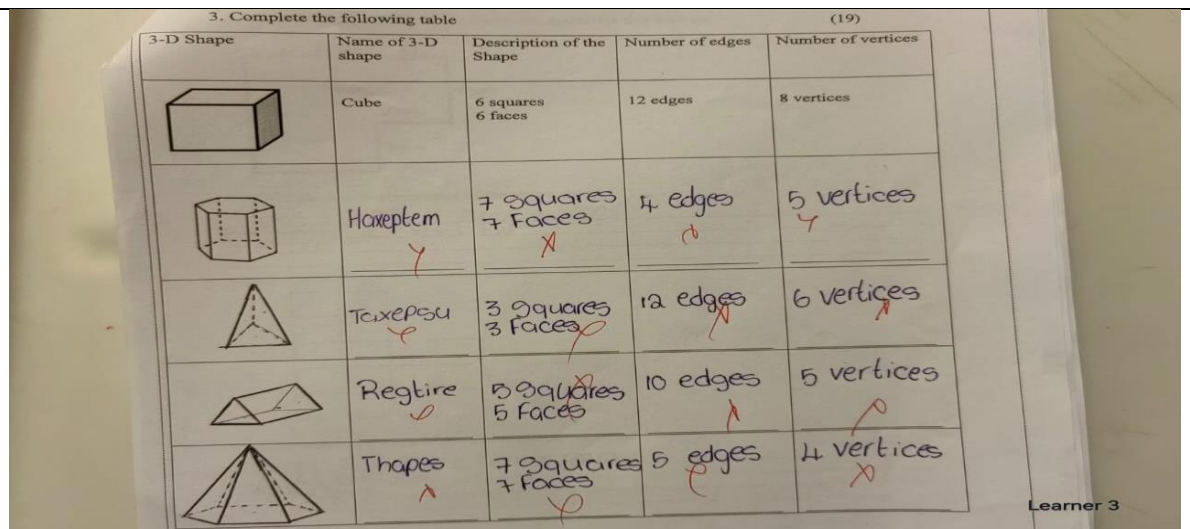 3. Complete the following table (19)
3-D Shape Name of 3-D shape Description of the Shape Number of edges Number of vertices
Cube 6 squares 6 faces 12 edges 8 vertices
Haxeptem 7 squares 7 Faces 4 edges 5 vertices
Taxepsu 3 squares 3 Faces 12 edges 6 vertices
Regtire 5 squares 5 Faces 10 edges 5 vertices
Thapes 7 squares 7 Faces 5 edges 4 vertices
Learner 3